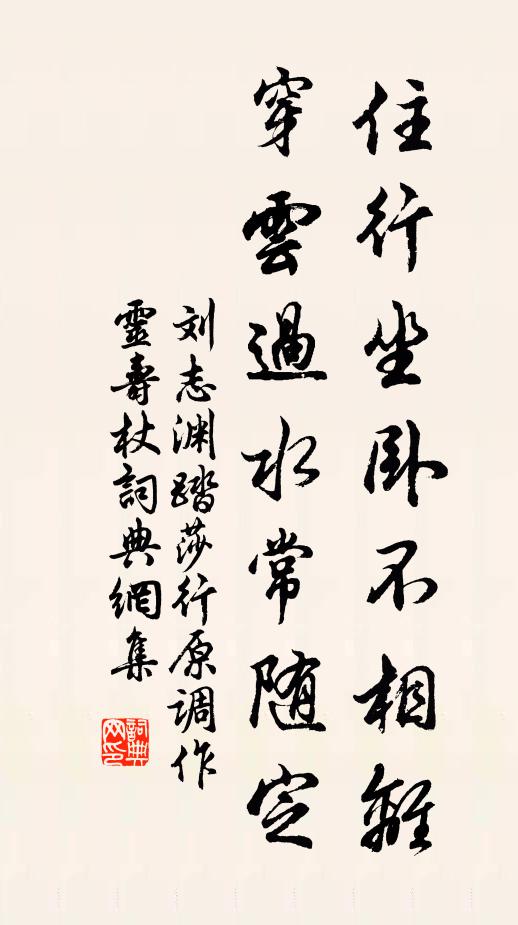 住行坐卧不相離
穿雲過水常随定
刘志渊踏莎行原调作
靈壽杖詞典網集
詞典网印